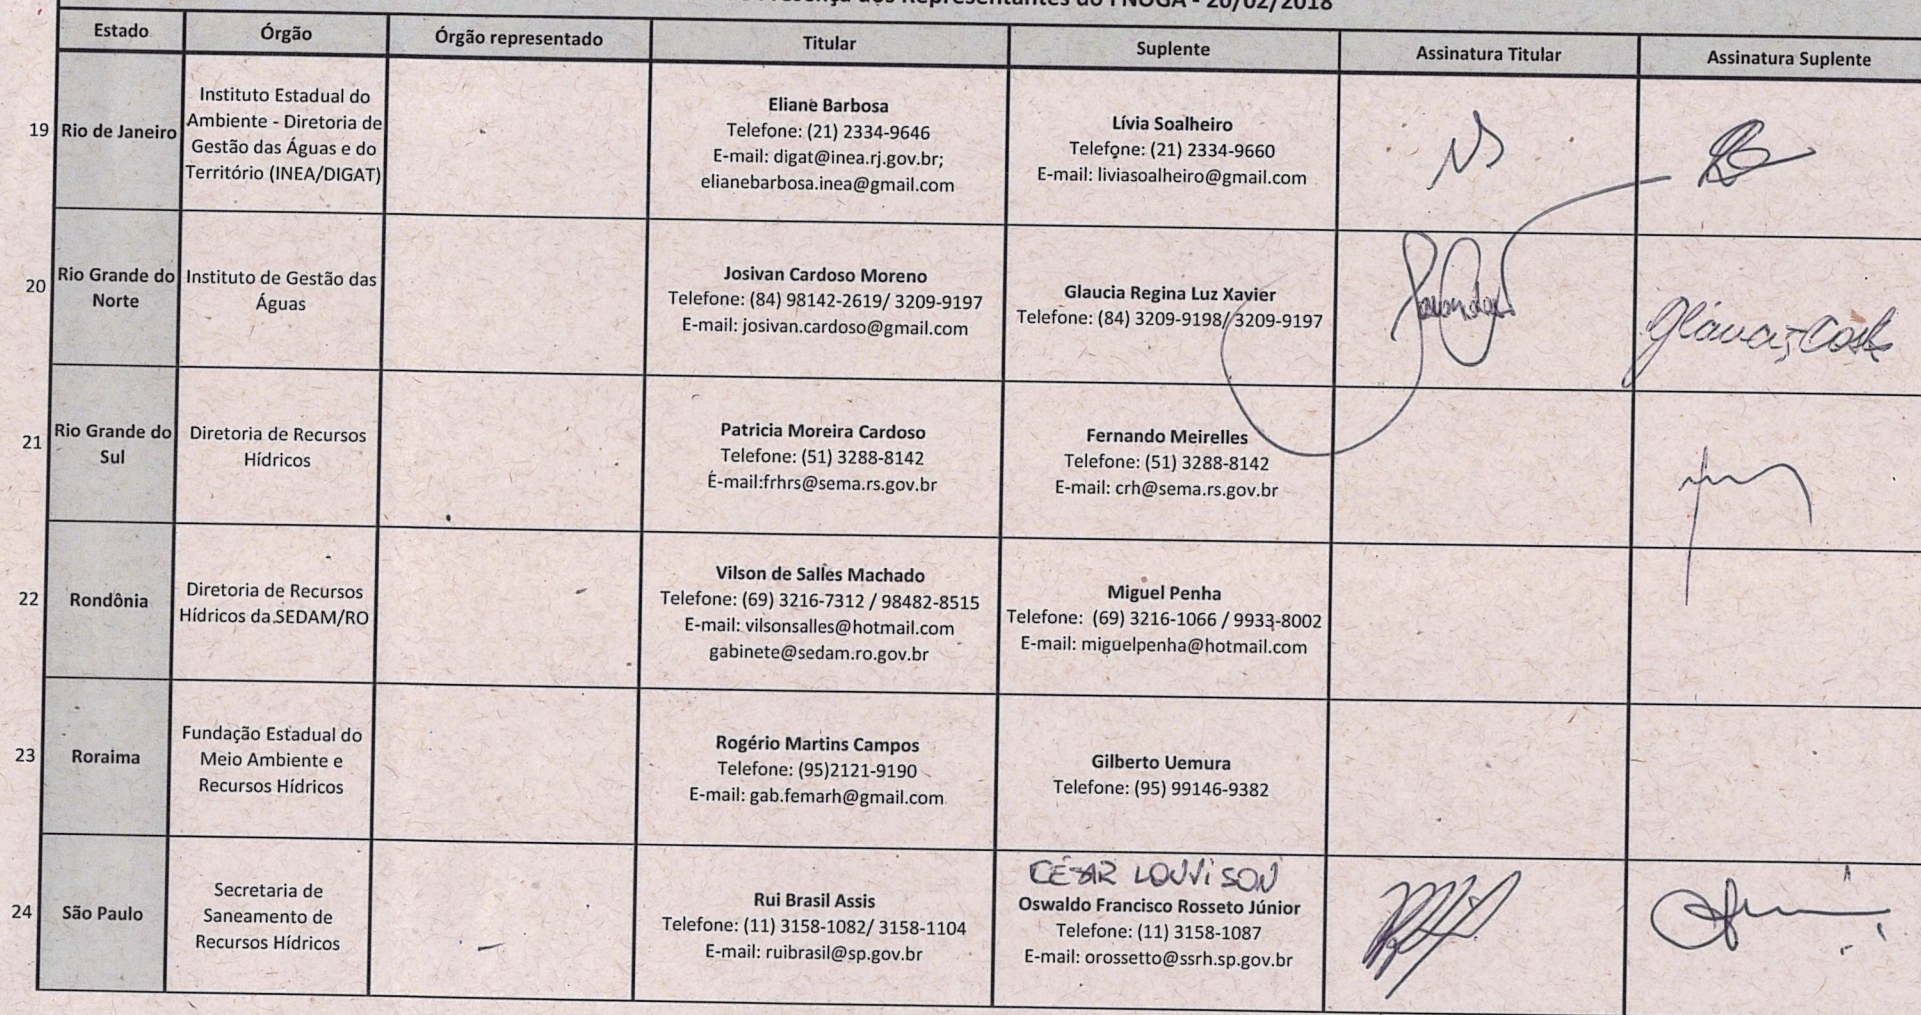 Presença dos Representantes do FNOGA - 20/02/2018
Estado
Órgão
Órgão representado
Titular
Suplente
Assinatura Titular
Assinatura Suplente
19
Rio de Janeiro
Instituto Estadual do
Ambiente - Diretoria de
Gestão das Águas e do
Território (INEA/DIGAT)
Eliane Barbosa
Telefone: (21) 2334-9646
E-mail: digat@inea.rj.gov.br;
elianebarbosa.inea@gmail.com
Lívia Soalheiro
Telefone: (21) 2334-9660
E-mail: liviasoalheiro@gmail.com
20
Rio Grande do
Norte
Instituto de Gestão das
Águas
Josivan Cardoso Moreno
Telefone: (84) 98142-2619/ 3209-9197
E-mail: josivan.cardoso@gmail.com
Glaucia Regina Luz Xavier
Telefone: (84) 3209-9198/ 3209-9197
21
Rio Grande do
Sul
Diretoria de Recursos
Hídricos
Patricia Moreira Cardoso
Telefone: (51) 3288-8142
E-mail:frhrs@sema.rs.gov.br
Fernando Meirelles
Telefone: (51) 3288-8142
E-mail: crh@sema.rs.gov.br
22
Rondônia
Diretoria de Recursos
Hídricos da SEDAM/RO
Vilson de Salles Machado
Telefone: (69) 3216-7312 / 98482-8515
E-mail: vilsonsalles@hotmail.com
gabinete@sedam.ro.gov.br
Miguel Penha
Telefone: (69) 3216-1066 / 9933-8002
E-mail: miguelpenha@hotmail.com
23
Roraima
Fundação Estadual do
Meio Ambiente e
Recursos Hídricos
Rogério Martins Campos
Telefone: (95)2121-9190
E-mail: gab.femarh@gmail.com
Gilberto Uemura
Telefone: (95) 99146-9382
24
São Paulo
Secretaria de
Saneamento de
Recursos Hídricos
Rui Brasil Assis
Telefone: (11) 3158-1082/ 3158-1104
E-mail: ruibrasil@sp.gov.br
CÉSAR LOUVISON
Oswaldo Francisco Rosseto Júnior
Telefone: (11) 3158-1087
E-mail: orossetto@ssrh.sp.gov.br